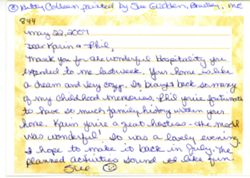 Kitty Colleen, painted by Sue
844
May 22, 2009
Dear Karin & Phil,
Thank you for the wonderful hospitality you
extended to me last week. Your home is like
a dream and very cozy. It brought back so many
of my childhood memories. Phil you're fortunate
to have so much family history within your
home. Karin you're a great hostess - the meal
was wonderful! It was a lovely evening
I hope to make it back in July. The
planned activities sound like fun.
Sue